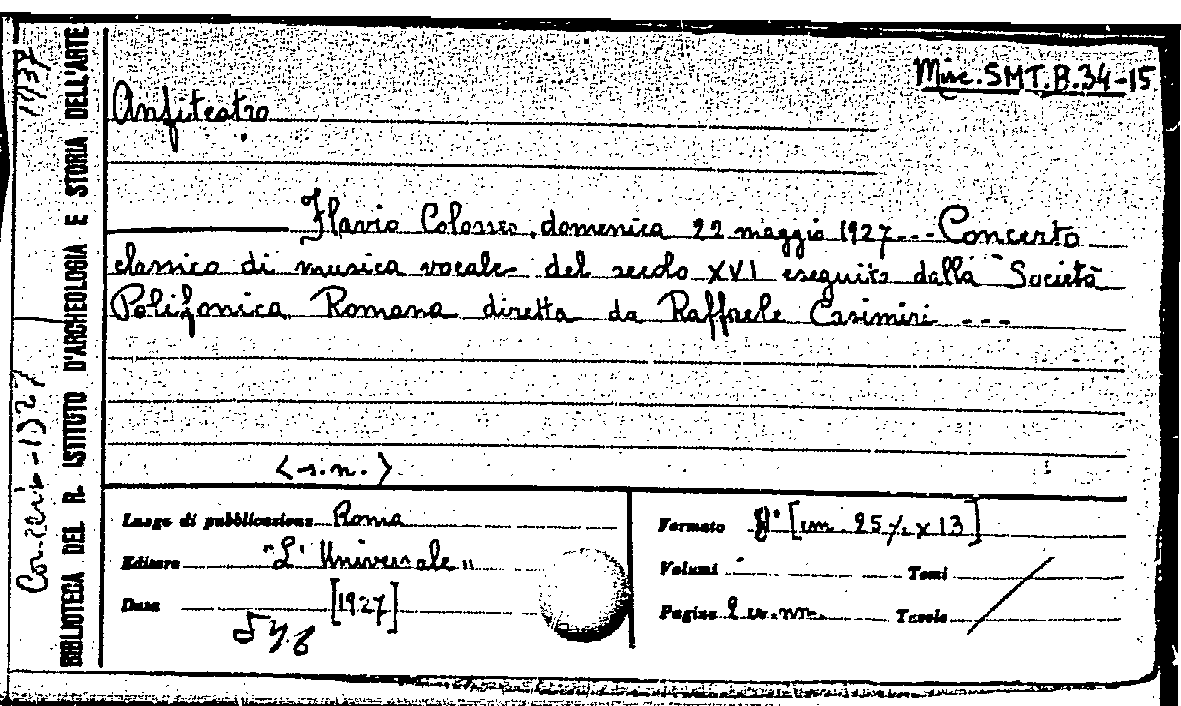 Misc. SMT. B. 34-15
Anfiteatro
Flavio Colosseo, domenica 22 maggio 1927 --- Concerto
classico di musica vocale del secolo XVI eseguito dalla Società
Polifonica Romana diretta da Raffaele Casimiri ---
<s.n.>
Luogo di pubblicazione Roma
Editore "L'Universale"
Data [1927]
Formato 8° [cm. 25 ½ x 13]
Volumi - Tomi
Pagine 2 nn. Tavole
BIBLIOTECA DEL R. ISTITUTO D'ARCHEOLOGIA E STORIA DELL'ARTE
Concerto - 1927